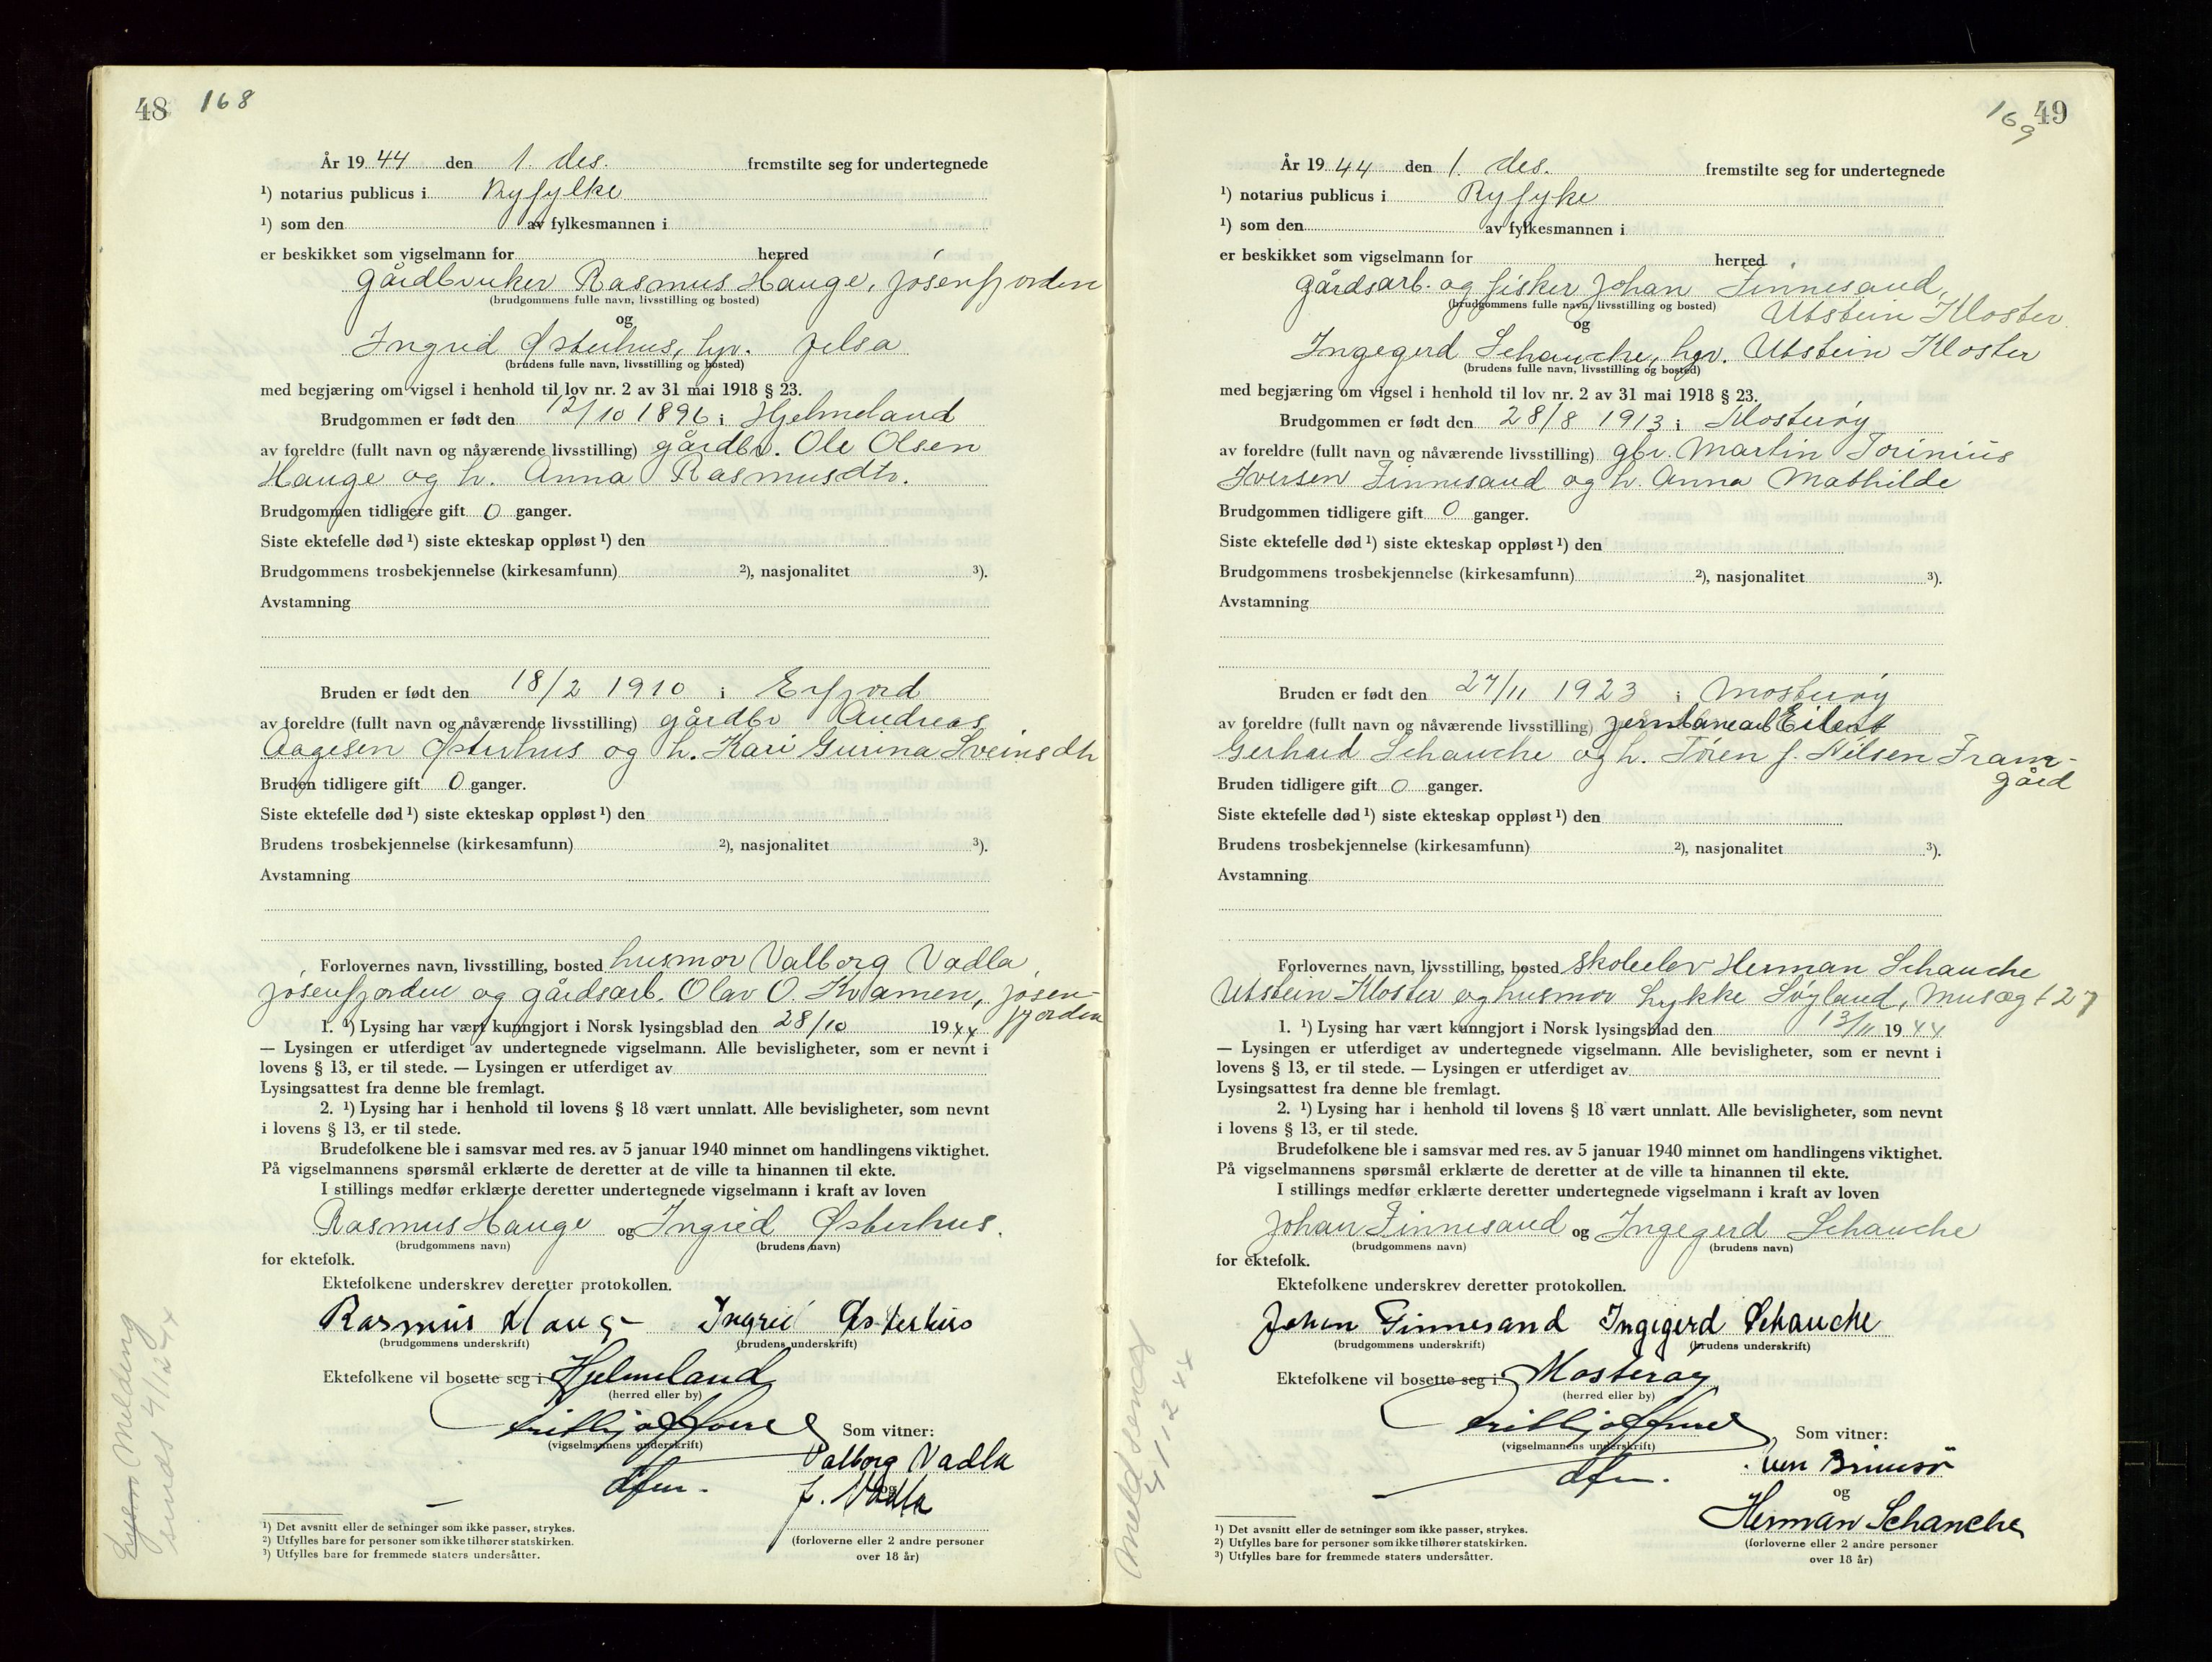 48 168
År 19 44 den 1. des. fremstilte seg for undertegnede
¹) notarius publicus i Ryfylke
¹) som den av fylkesmannen i
er beskikket som vigselmann for herred
gårdbruker Rasmus Hauge, Jøsenfjorden
(brudgommens fulle navn, livsstilling og bosted)
og
Ingrid Østerhus, hv. Jelsa
(brudens fulle navn, livsstilling og bosted)
med begjæring om vigsel i henhold til lov nr. 2 av 31 mai 1918 § 23.
Brudgommen er født den 12/10 1896 i Hjelmeland
av foreldre (fullt navn og nåværende livsstilling) gårdbr. Ole Olsen
Hauge og h. Anna Rasmusdtr.
Brudgommen tidligere gift 0 ganger.
Siste ektefelle død ¹) siste ekteskap oppløst ¹) den
Brudgommens trosbekjennelse (kirkesamfunn) ²), nasjonalitet ³).
Avstamning
Bruden er født den 18/2 1910 i Erfjord
av foreldre (fullt navn og nåværende livsstilling) gårdbr Andreas
Aagesen Østerhus og h. Kari Gurina Sveinsdtr
Bruden tidligere gift 0 ganger.
Siste ektefelle død ¹) siste ekteskap oppløst ¹) den
Brudens trosbekjennelse (kirkesamfunn) ²), nasjonalitet ³).
Avstamning
Forlovernes navn, livsstilling, bosted husmor Valborg Vadla
Jøsenfjorden og gårdsarb. Olav O. Kvamen, Jøsen-
fjorden
1. ¹) Lysing har vært kunngjort i Norsk lysingsblad den 28/10 1944
— Lysingen er utferdiget av undertegnede vigselmann. Alle bevisligheter, som er nevnt i
lovens § 13, er til stede. — Lysingen er utferdiget av
Lysingsattest fra denne ble fremlagt.
2. ¹) Lysing har i henhold til lovens § 18 vært unnlatt. Alle bevisligheter, som nevnt
i lovens § 13, er til stede.
Brudefolkene ble i samsvar med res. av 5 januar 1940 minnet om handlingens viktighet.
På vigselmannens spørsmål erklærte de deretter at de ville ta hinannen til ekte.
I stillings medfør erklærte deretter undertegnede vigselmann i kraft av loven
Rasmus Hauge og Ingrid Østerhus.
(brudgommens navn) (brudens navn)
for ektefolk.
Ektefolkene underskrev deretter protokollen.
Rasmus Hauge Ingrid Østerhus
(brudgommens underskrift) (brudens underskrift)
Ektefolkene vil bosette seg i Hjelmeland
(herred eller by)
(vigselmannens underskrift)
Som vitner:
Valborg Vadla
og
J. Vadla
(forloverne eller 2 andre personer
over 18 år)
¹) Det avsnitt eller de setninger som ikke passer, strykes.
²) Utfylles bare for personer som ikke tilhører statskirken.
³) Utfylles bare for fremmede staters undersåtter.
Melding
sendt 4/12 44
169 49
År 19 44 den 1. des. fremstilte seg for undertegnede
¹) notarius publicus i Ryfyke
¹) som den av fylkesmannen i
er beskikket som vigselmann for herred
gårdsarb. og fisker Johan Finnesand,
(brudgommens fulle navn, livsstilling og bosted)
Utstein Kloster
og
Ingegerd Schanche, hgv. Utstein Kloster
(brudens fulle navn, livsstilling og bosted)
med begjæring om vigsel i henhold til lov nr. 2 av 31 mai 1918 § 23.
Brudgommen er født den 28/8 1913 i Mosterøy
av foreldre (fullt navn og nåværende livsstilling) gbr. Martin Torinius
Iversen Finnesand og h. Anna Mathilde
Brudgommen tidligere gift 0 ganger.
Siste ektefelle død ¹) siste ekteskap oppløst ¹) den
Brudgommens trosbekjennelse (kirkesamfunn) ²), nasjonalitet ³).
Avstamning
Bruden er født den 27/11 1923 i Mosterøy
av foreldre (fullt navn og nåværende livsstilling) jernbanearb Eilert
Gerhard Schanche og h. Tøren f. Nilsen Fram-
gård
Bruden tidligere gift 0 ganger.
Siste ektefelle død ¹) siste ekteskap oppløst ¹) den
Brudens trosbekjennelse (kirkesamfunn) ²), nasjonalitet ³).
Avstamning
Forlovernes navn, livsstilling, bosted skoleelev Herman Schanche
Utstein Kloster og husmor Lykke Søyland, Musægt 27
1. ¹) Lysing har vært kunngjort i Norsk lysingsblad den 13/11 1944
— Lysingen er utferdiget av undertegnede vigselmann. Alle bevisligheter, som er nevnt i
lovens § 13, er til stede. — Lysingen er utferdiget av
Lysingsattest fra denne ble fremlagt.
2. ¹) Lysing har i henhold til lovens § 18 vært unnlatt. Alle bevisligheter, som nevnt
i lovens § 13, er til stede.
Brudefolkene ble i samsvar med res. av 5 januar 1940 minnet om handlingens viktighet.
På vigselmannens spørsmål erklærte de deretter at de ville ta hinannen til ekte.
I stillings medfør erklærte deretter undertegnede vigselmann i kraft av loven
Johan Finnesand og Ingegerd Schanche
(brudgommens navn) (brudens navn)
for ektefolk.
Ektefolkene underskrev deretter protokollen.
Johan Finnesand Ingegerd Schanche
(brudgommens underskrift) (brudens underskrift)
Ektefolkene vil bosette seg i Mosterøy
(herred eller by)
(vigselmannens underskrift)
Som vitner:
Brimsø
og
Herman Schanche
(forloverne eller 2 andre personer
over 18 år)
¹) Det avsnitt eller de setninger som ikke passer, strykes.
²) Utfylles bare for personer som ikke tilhører statskirken.
³) Utfylles bare for fremmede staters undersåtter.
4/12 44